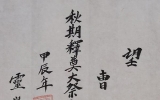 望
曹
秋期釋奠大祭
甲辰年
靈